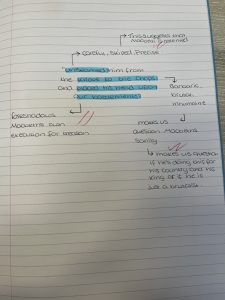 This suggests that
Macbeth is
Careful, Skilled, Precise
"unseamed him from
the nave to the chops
and placed his head upon
our battlements"
Barbaric
Inhumane
foreshadows
Macbeth's own
execution for treason
makes us
question Macbeth's
Sanity
makes us question
if he's doing this for
his country and his
king or if he is
just a brutalist